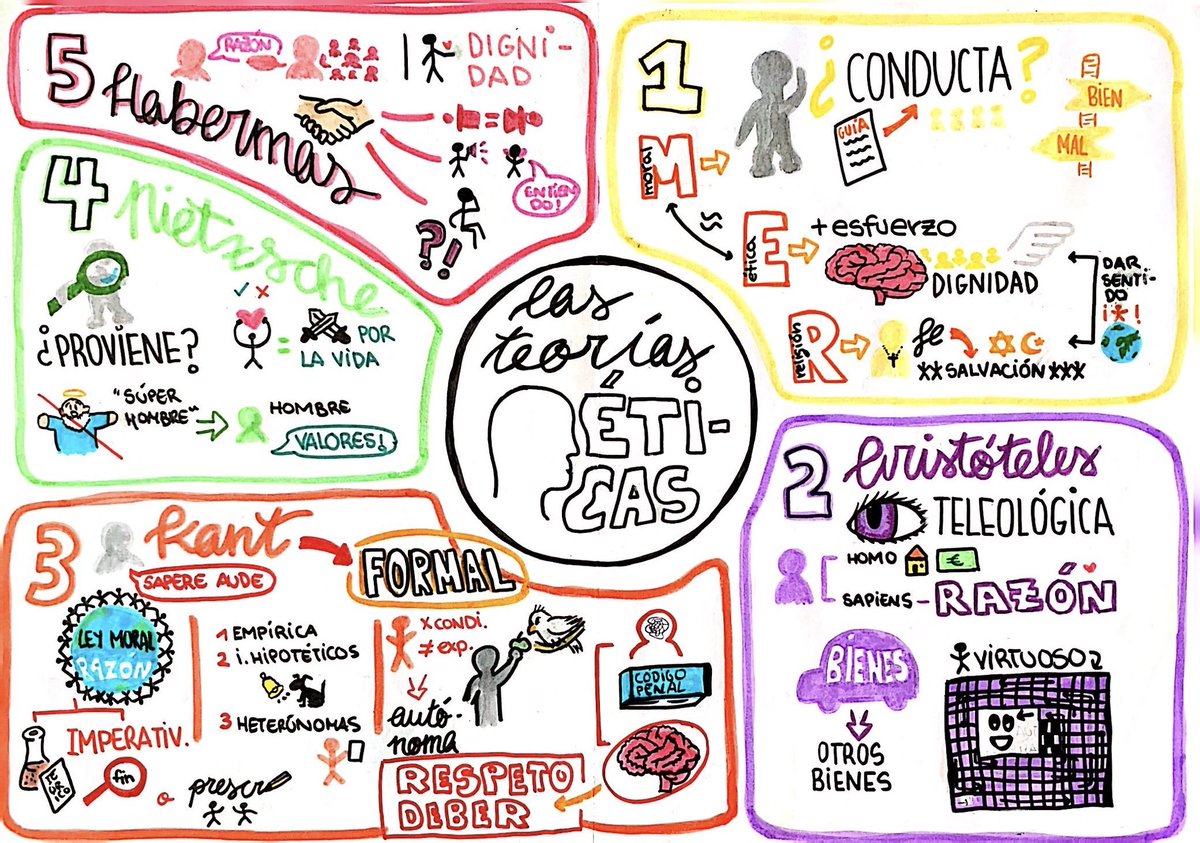 las
teorías
ÉTI-
CAS
1
¿CONDUCTA?
GUÍA
BIEN
MAL
moral
M
ética
E
+ esfuerzo
DIGNIDAD
DAR
SENTI-
DO
¡*!
religión
R
fe
**SALVACIÓN***
2 Aristóteles
TELEOLÓGICA
HOMO
€
SAPIENS - RAZÓN
BIENES
OTROS
BIENES
VIRTUOSO
3 Kant
SAPERE AUDE
FORMAL
LEY MORAL
RAZÓN
IMPERATIV.
TEÓRICO
fin
o prescr
1 EMPÍRICA
2 i. HIPOTÉTICOS
3 HETERÚNOMAS
X CONDI.
≠ exp.
autó-
noma
CÓDIGO
PENAL
RESPETO
DEBER
4 Nietzsche
✓ ×
¿PROVIENE?
= POR
LA VIDA
"SÚPER
HOMBRE"
HOMBRE
VALORES!
5 Habermas
RAZÓN
DIGNI-
DAD
=
ENTIEN
DO!
?!